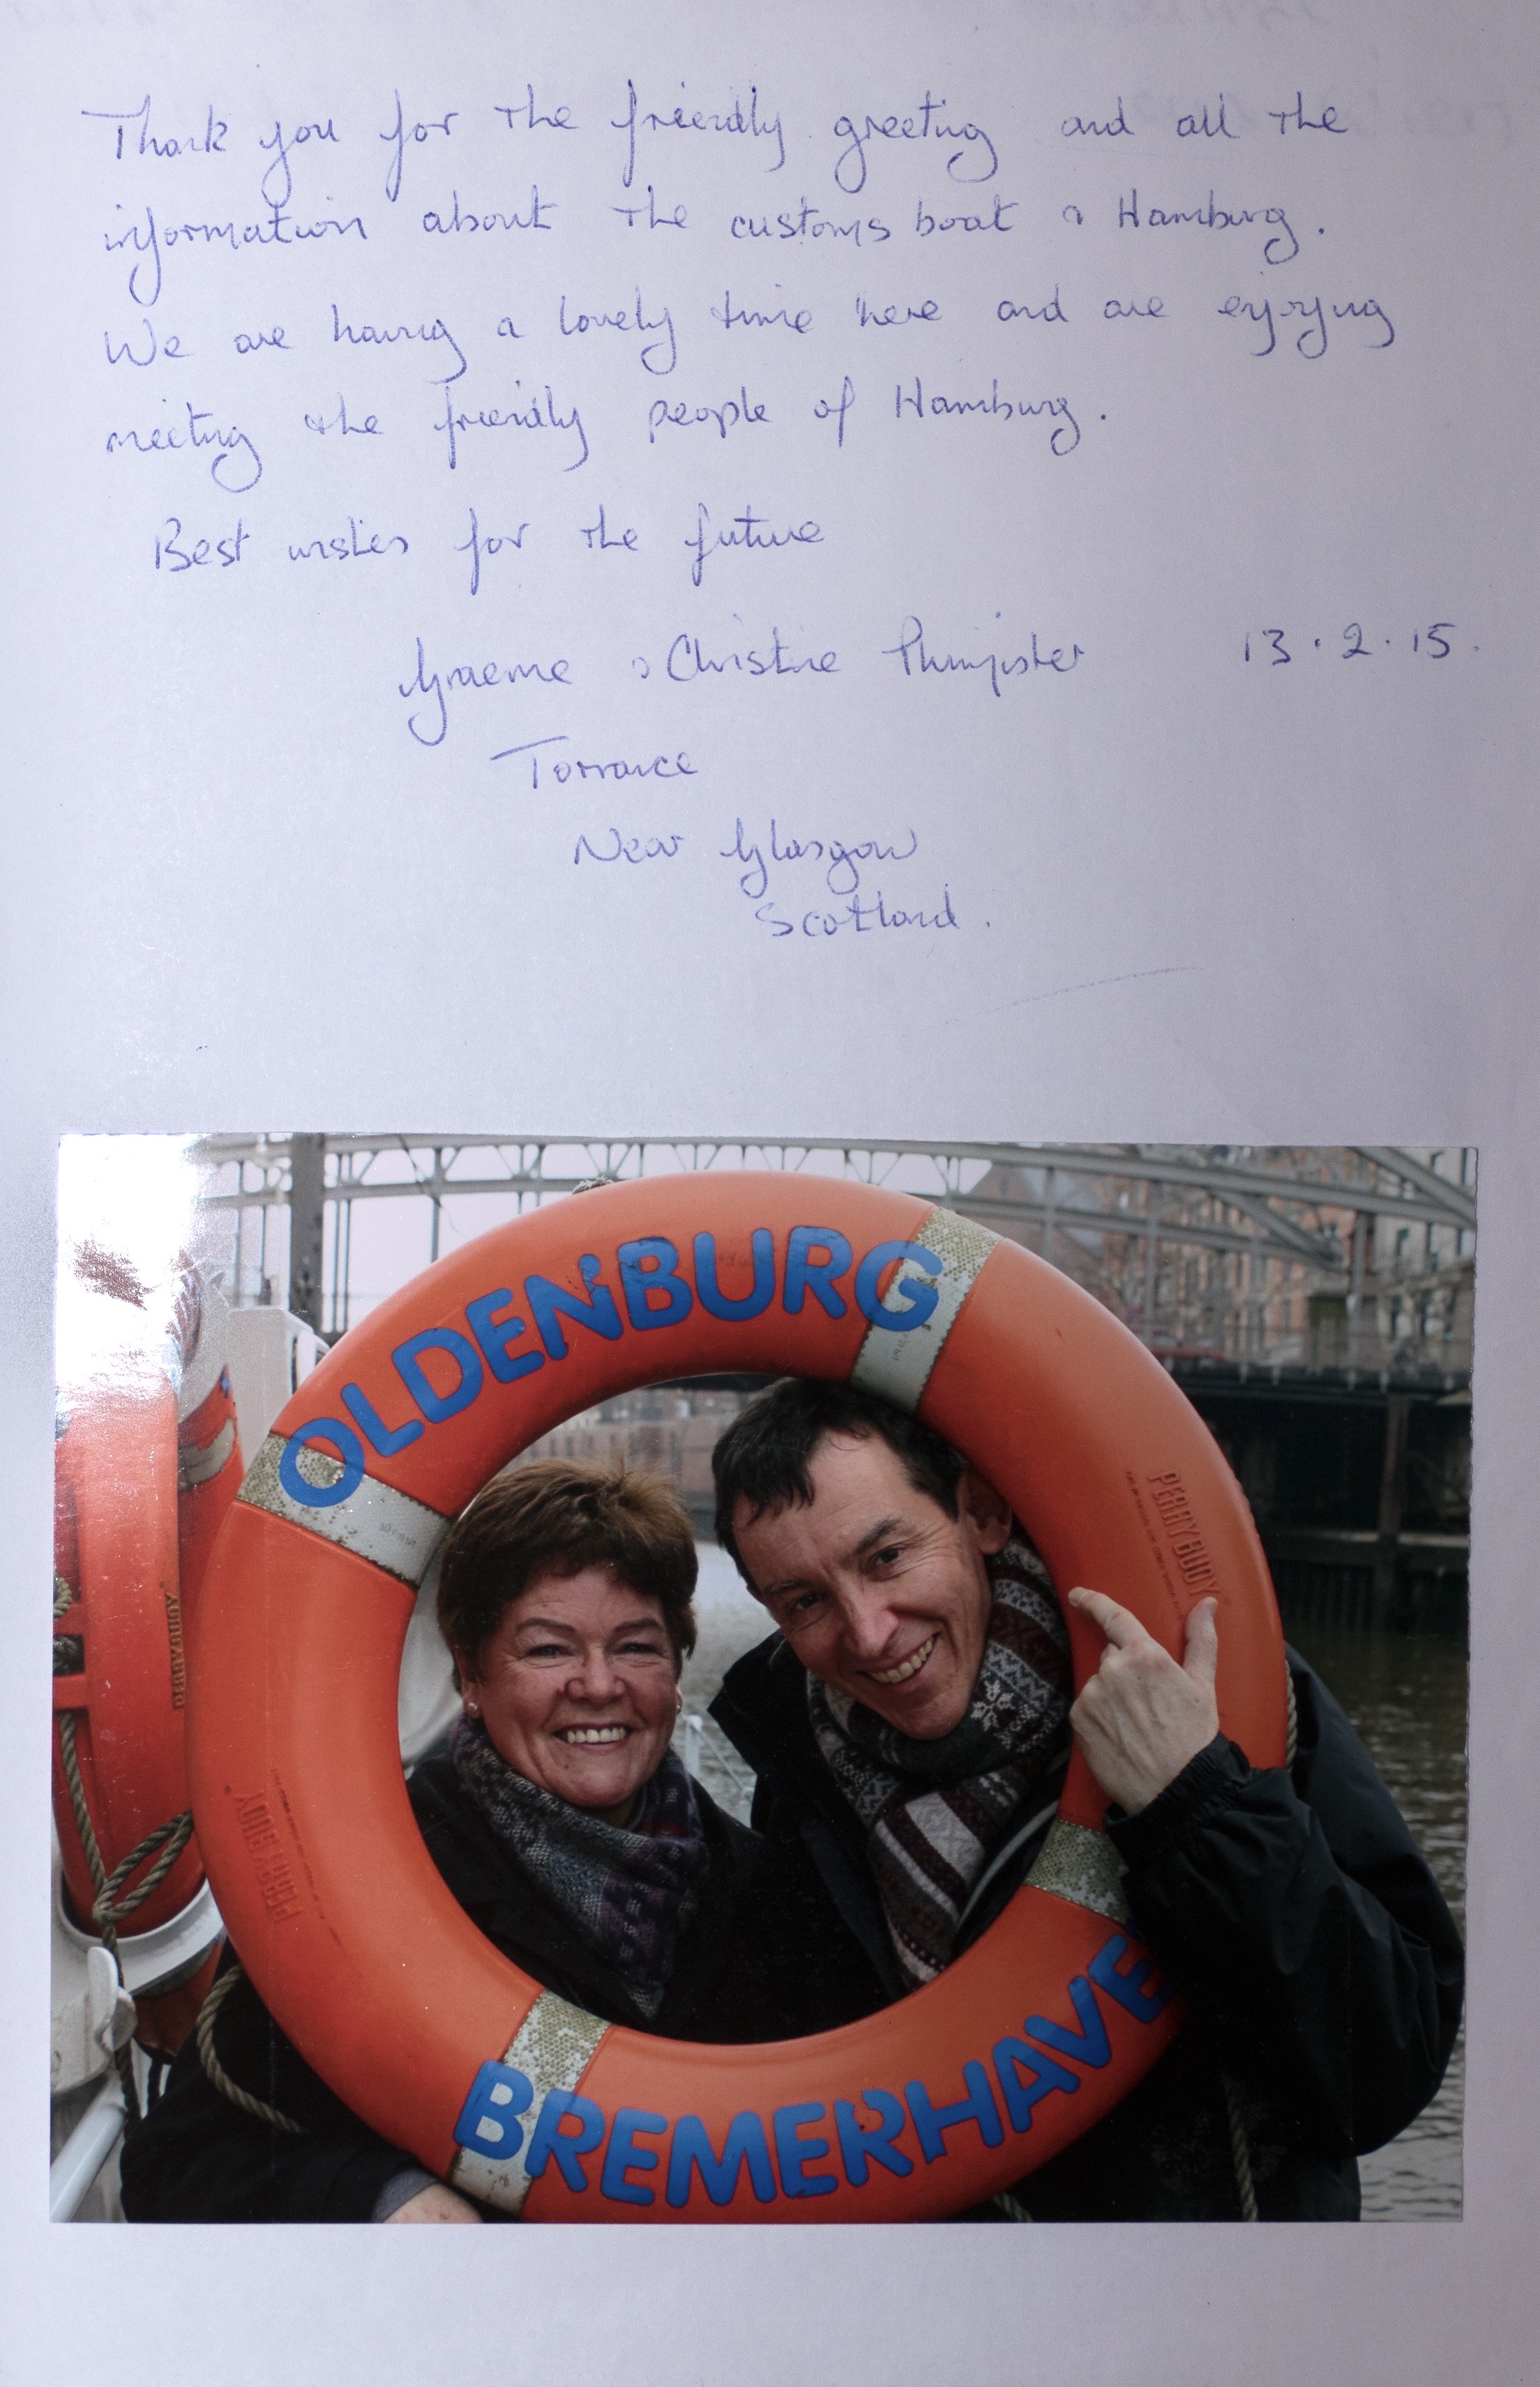 Thank you for the friendly greeting and all the
information about the customs boat & Hamburg.
We are having a lovely time here and are enjoying
meeting the friendly people of Hamburg.
Best wishes for the future
Graeme & Christine 13.2.15.
Torrance
Near Glasgow
Scotland.
OLDENBURG
PERRYBUOY
PERRYBUOY
PERRYBUOY
BREMERHAVE